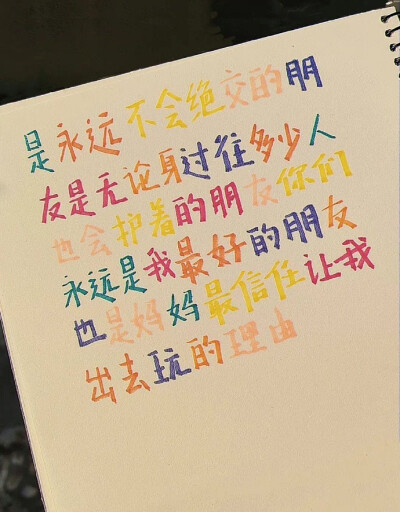 是永远不会绝交的朋
友是无论身过往多少人
也会护着的朋友你们
永远是我最好的朋友
也是妈妈最信任让我
出去玩的理由